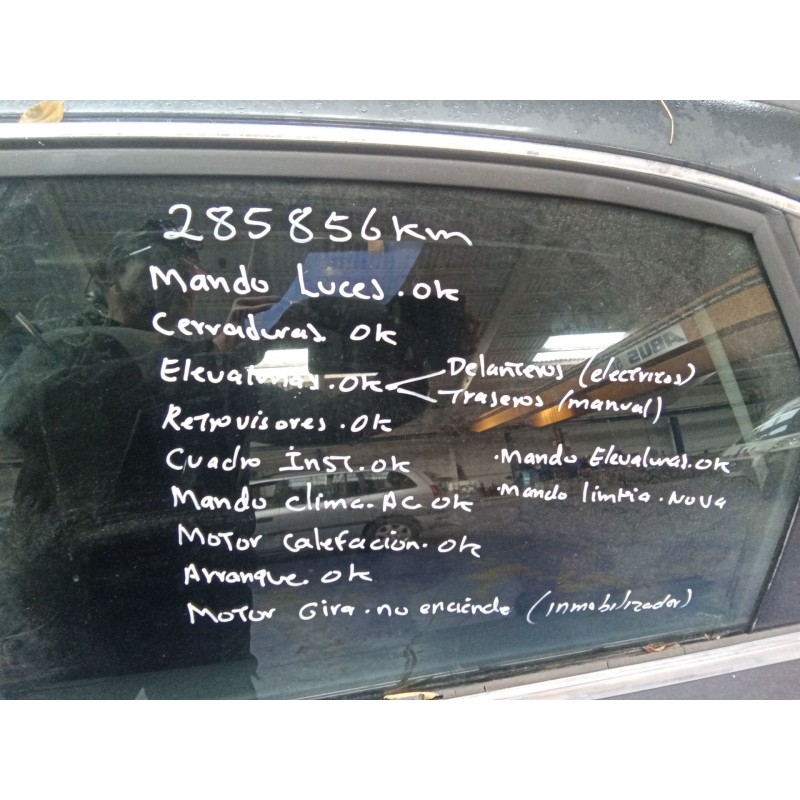 285856km
Mando Luces.ok
Cerraduras ok
Elevalunas.ok
Delanteros (electricos)
Traseros (manual)
Retrovisores.ok
Cuadro Inst.ok
·Mando Elevalunas.ok
Mando clima.AC ok
·Mando limpia.no va
Motor calefacion.ok
Arranque.ok
Motor Gira.no enciende (inmobilizador)
ABUS